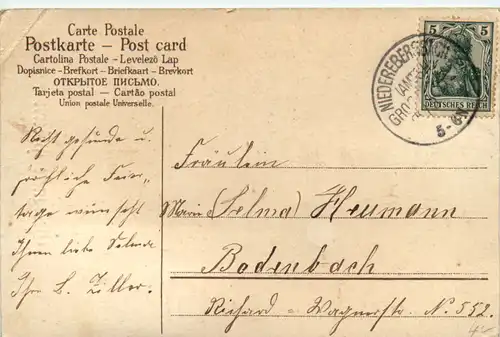 Carte Postale
Postkarte – Post card
Cartolina Postale - Levelező Lap
Dopisnice - Brefkort - Briefkaart - Brevkort
ОТКРЫТОЕ ПИСЬМО.
Tarjeta postal — Cartão postal
Union postale Universelle.
5 5
DEUTSCHES REICH
NIEDEREBERSBACH
5-6
Recht gesunde u.
fröhliche Feier-
tage wünscht
Ihnen liebe Selma
Ihre L. Ziller.
Fräulein
Marie (Selma) Heumann
Bodenbach
Richard - Wagnerstr. N. 552.